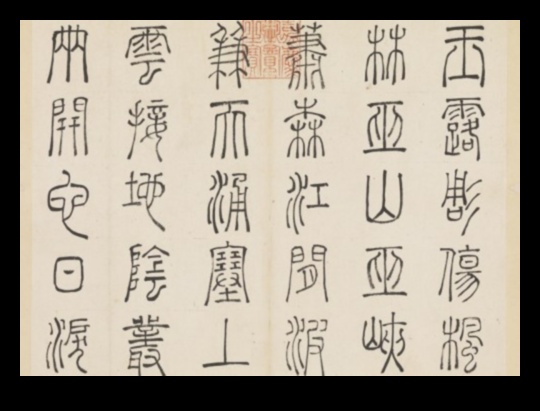 玉露彫傷楓
林巫山巫峽
蕭森江間波
兼天涌塞上
雲接地陰叢
兩開它日淚